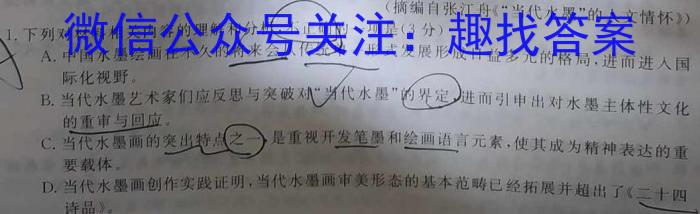 (摘编自张江舟《"当代水墨"的人文情怀》)
微信公众号关注：趣找答案
1. 下列对 的理解和分析，不正确的一项是(3分)
A. 中国水墨绘画在不久的将来会 形式发展形成 多元的格局，进而进入国
际化视野。
B. 当代水墨艺术家们应反思与突破对"当代水墨"的界定，进而引申出对水墨主体性文化
的重审与回应。
C. 当代水墨画的突出特点之一，是重视开发笔墨和绘画语言元素，使其成为精神表达的重
要载体。
D. 当代水墨画创作实践证明，当代水墨画审美形态的基本范畴已经拓展并超出了《二十四
诗品》。